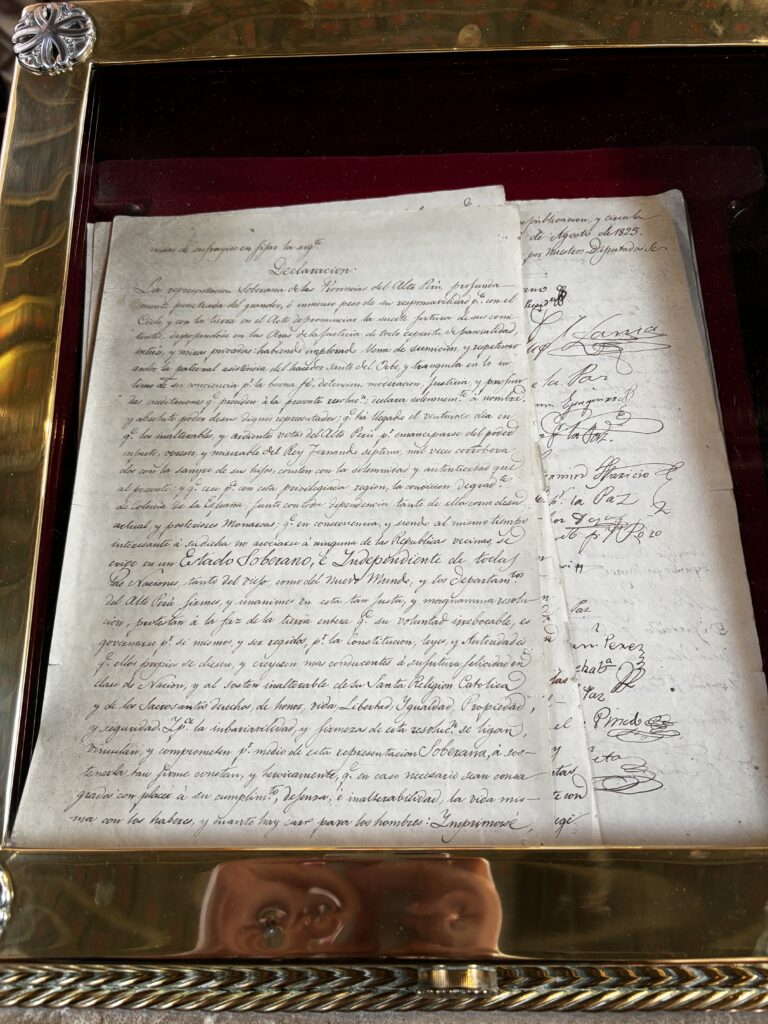 nimor de sufragios en fijar la sigte
Declaracion
La representacion Soberana de las Provincias del Alto Perú, profunda-
mente penetrada del grandor, é inmenso peso de su responsabilidad pa. con el
Cielo, y con la tierra en el Acto de pronunciar la suerte futura de sus comi-
tentes, despojandose en las Aras de la justicia de todo espiritu de parcialidad,
interes, y miras privadas: habiendo implorado llena de sumicion, y respetuoso
ardor la paternal asistencia del hacedor Santo del Orbe, y tranquila en lo in-
timo de su conciencia pr. la buena fé, detencion, moderacion, justicia, y profun-
das meditaciones qe. preciden á la presente resolucn. declara solemnemte. á nombre,
y absoluto poder de sus dignos representados; qe. há llegado el venturoso dia en
qe. los inalterables, y ardientes votos del Alto Perú pr. emanciparse del poder
injusto, opresor, y miserable del Rey Fernando septimo, mil veces corrobora-
dos con la sangre de sus hijos, consten con la solemnidad y autenticidad que
al presente; y qe. cese pa. con esta privilegiada region, la condicion degradte.
de Colonia de la España, junto con toda dependencia tanto de ella como de su
actual, y posteriores Monarcas; qe. en consecuencia, y siendo al mismo tiempo
interesante á su dicha no asociarse á ninguna de las Republicas vecinas, se
erige en un Estado Soberano, é Independiente de todas
las Naciones, tanto del viejo, como del Nuevo Mundo, y los Departamtos
del Alto Perú firmes, y unanimes en esta tan justa, y magnanima resolu-
cion, protestan á la faz de la tierra entera qe. su voluntad irrebocable, es
governarse pr. si mismos, y ser regidos, pr. la Constitucion, leyes, y Autoridades
qe. ellos propios se diesen, y creyesen mas conducentes á su futura felicidad en
clase de Nacion, y al sosten inalterable de su Santa Religion Catolica,
y de los Sacrosantos derechos de honor, vida, Libertad, Igualdad, Propiedad,
y seguridad. Y pa. la inbariavilidad, y firmeza de esta resolucn. se ligan,
vinculan, y comprometen pr. medio de esta representacion Soberana, á sos-
tenerla tan firme, constan, y heroicamente, qe. en caso necesario sean consa-
grados con placer á su cumplimto, defensa, é inalterabilidad, la vida mis-
ma con los haberes, y cuanto hay caro para los hombres: Imprimase,
publicacion, y circula
de Agosto de 1825.
por Nuestros Diputados Se
e la Paz
pr. la Paz
Aparicio
la Paz
Paz
Perez
Paz
Pinedo
te con